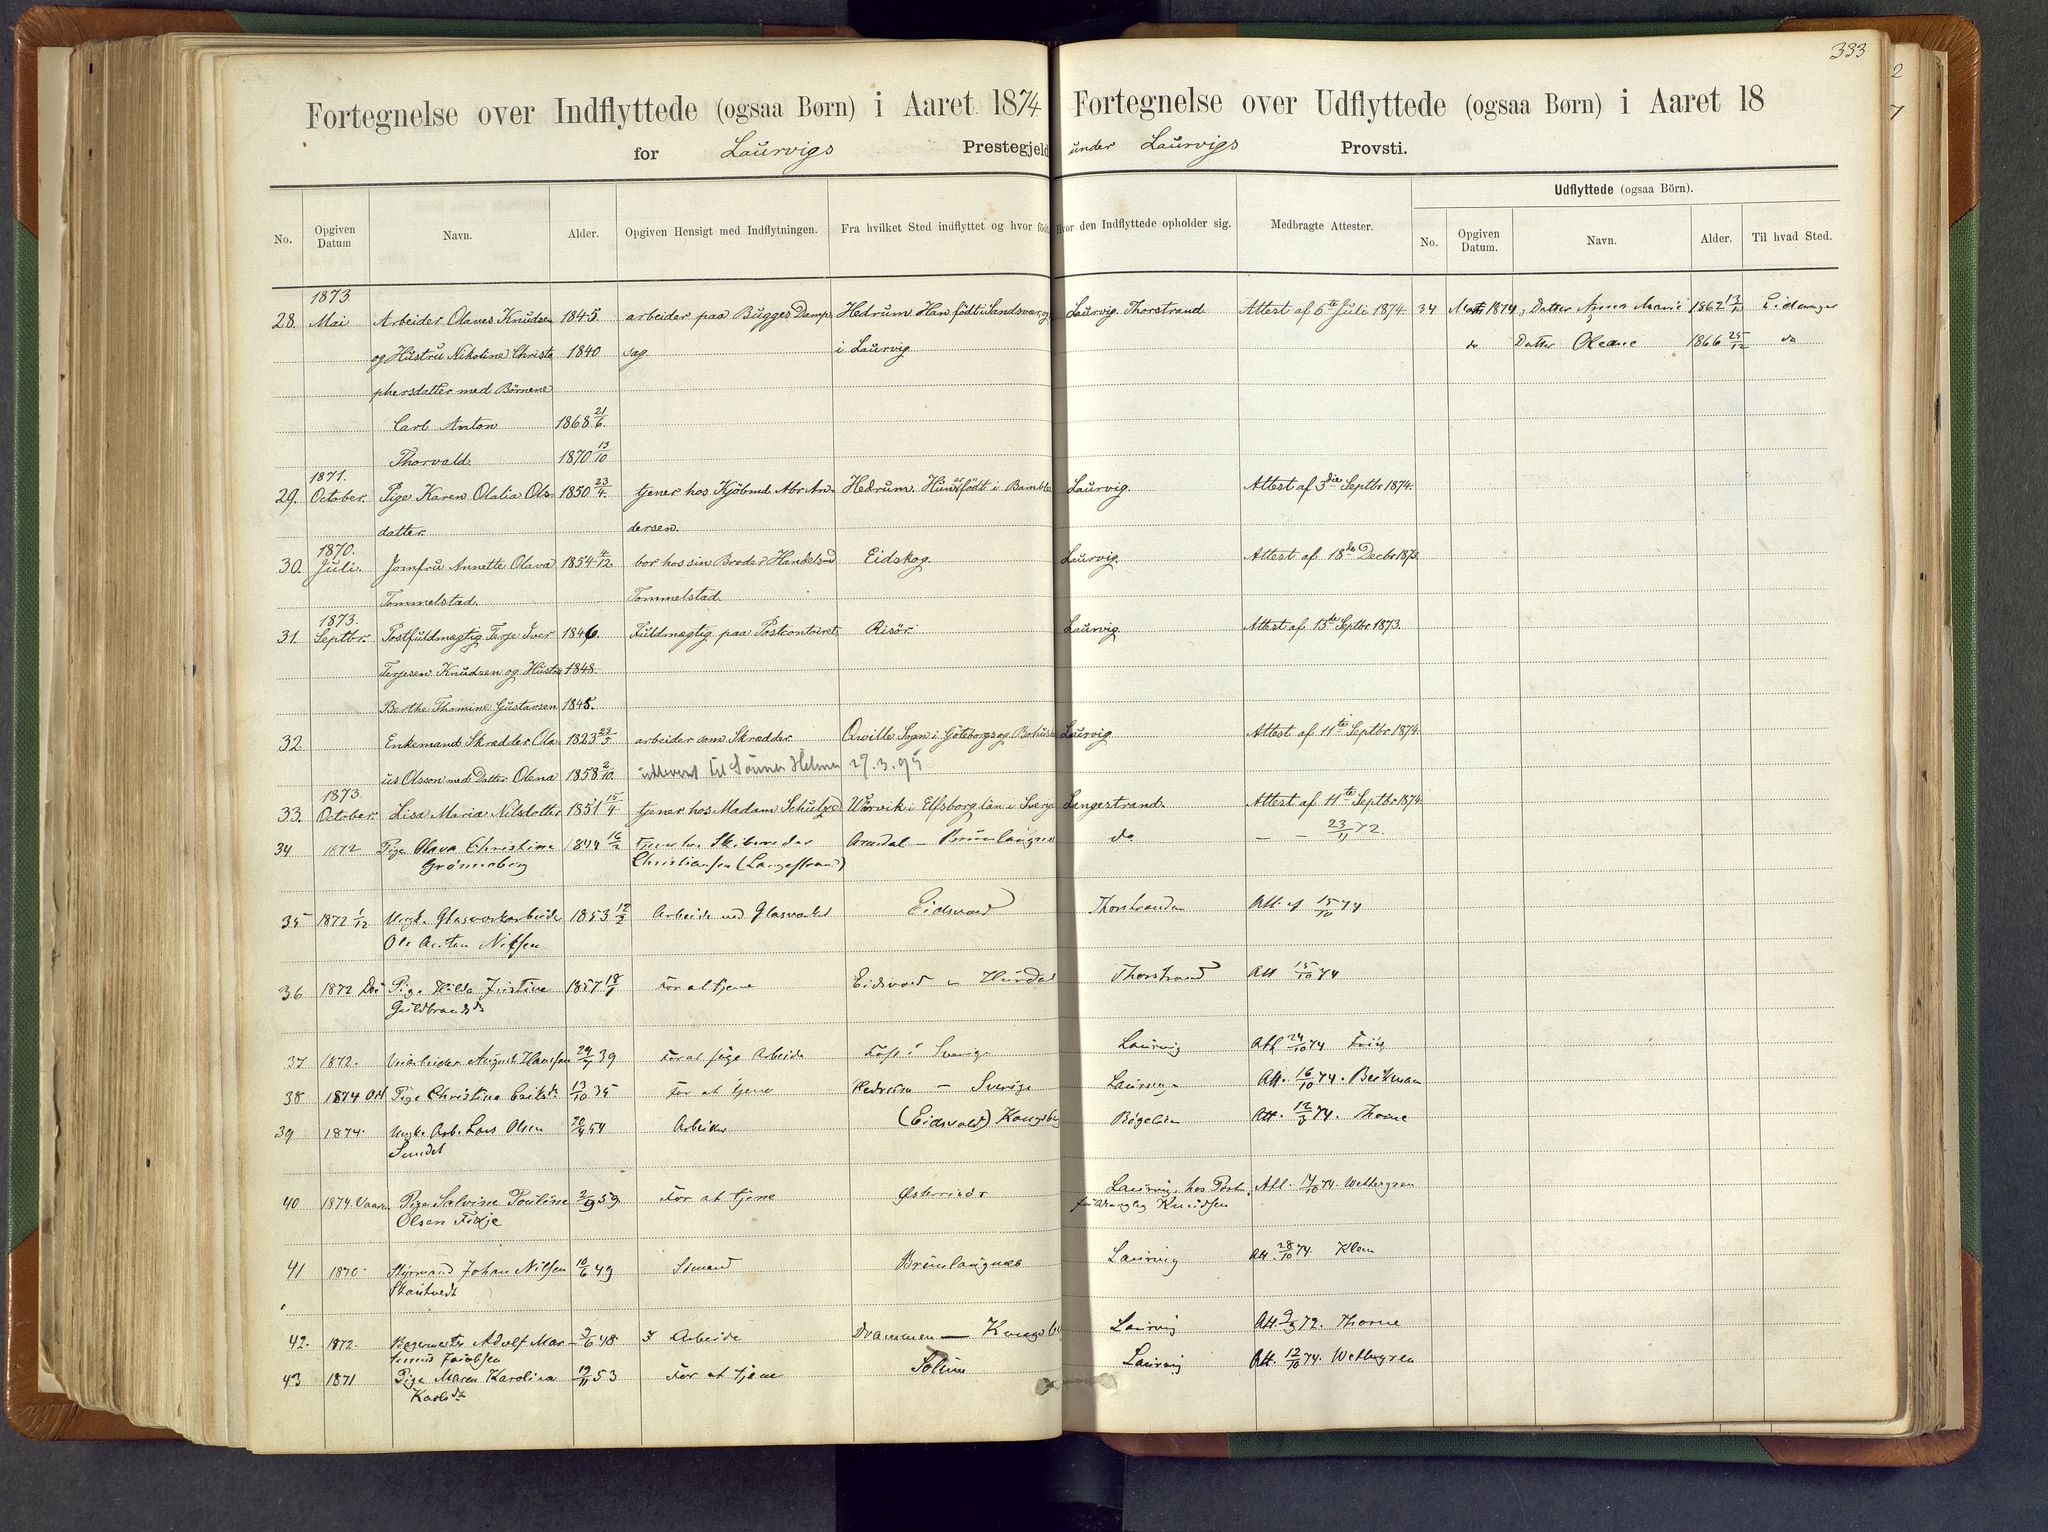 333
Fortegnelse over Indflyttede (ogsaa Børn) i Aaret 1874 Fortegnelse over Udflyttede (ogsaa Børn) i Aaret 18
for Laurvigs Prestegjeld under Laurvigs Provsti.
Udflyttede (ogsaa Börn).
No. Opgiven Datum Navn. Alder. Opgiven Hensigt med Indflytningen. Fra hvilket Sted indflyttet og hvor født. Hvor den Indflyttede opholder sig. Medbragte Attester. No. Opgiven Datum. Navn. Alder. Til hvad Sted.
1873
28. Mai Arbeider Olaves Knudsen 1845. arbeider paa Bugges Damp- Hedrum. Han født i Sandsvær, og Laurvig Thorstrand Attest af 6te Juli 1874. 34 1874 Datter Anna Marie 1862 13/10 Eidanger
og Hustru Nikoline Christo 1840 sag i Laurvig do Datter Oleane 1866 25/12 do
phersdatter med Børnene
Carl Anton 1868 21/6.
Thorvald. 1870 13/10
1871.
29. October. Pige Karen Olalia Ols- 1850 23/4. tjener hos Kjøbmd Abr. An- Hedrum. Hun født i Bamble Laurvig. Attest af 3die Septbr 1874.
datter. dersen.
1870.
30. Juli. Jomfru Annette Olava 1854 4/12. bor hos sin Broder Handelsmd Eidskog. Laurvig. Attest af 18de Decbr 1873
Tommelstad. Tommelstad.
1873.
31. Septbr. Postfuldmægtig Terje Iver 1846 Fuldmægtig paa Postcontoiret Risör. Laurvig. Attest af 15de Septbr 1873.
Terjesen Knudsen og Hustru 1848
Berthe Thomine Gustavsen 1845.
32 Enkemand Skrædder Ola- 1823 23/5 arbeider som Skrædder Qville Sogn i Göteborgs og Bohus Laurvig Attest af 11te Septbr 1874
us Olsson med Datter Olena 1858 2/10. udleveret til Sønnen Helmer 29.3.95
1873.
33. October. Lisa Maria Nilsdotter 1851 15/4 tjener hos Madam Schultze. Wårvik i Elfsborg län i Sverge Langestrand. Attest af 11te Septbr 1874
34 1872 Pige Olava Christine 1844 16/2 Skibsreder Arendal – Brunlaugnes do – – 23/11 72.
Grønneberg Christiansen (Langestrand)
35 1872 1/12 Ungk. Glasværkarbeider 1853 12/2 Arbeide ved Glasværket Eidsvold Thorstranden Att. af 15/10 74
Ole Anton Nilsen
36 1872 Pige Hilda Justine 1857 18/1 For at tjene Eidsvold – Hurdal Thorstrand Att 15/10 74
Guldbrandsd.
37 1872. August Hansen 29/7 39 For at søge Arbeide Født i Sverige Laurvig Att 24/10 74 Friis
38 1874 Oct Pige Christina Eriksd. 13/10 35 For at tjene Hedrum – Sverige Laurvig Att. 16/10 74. Beckman
39 1874. Ungk. Arb. Lars Olsen 20/4 54 Arbeider (Eidsvold) Kongsberg Bøgelien Att. 12/3 74. Thorne
Sundet
40 1874. Vaaren Pige Salvine Pouline 2/9 59 For at tjene Østerrisør Laurvig, hos Post- Att. 14/10 74. Wettergren
Olsen Fidje fuldmægtig Knudsen
41 1870. Styrmand Johan Nilsen 10/6 49 Sømand Brunlaugnæs Laurvig Att. 28/10 74. Klem
Skautvedt
42. 1872. Bagermester Adolf Mar- 9/6 48. I Arbeide Drammen – Kongsberg Laurvig Att. 9/3 72. Thorne
tinius Jacobsen
43 1871 Pige Maren Karolina 19/11 53 For at tjene Solum Laurvig Att. 12/10 74. Wettergren
Karlsdt.